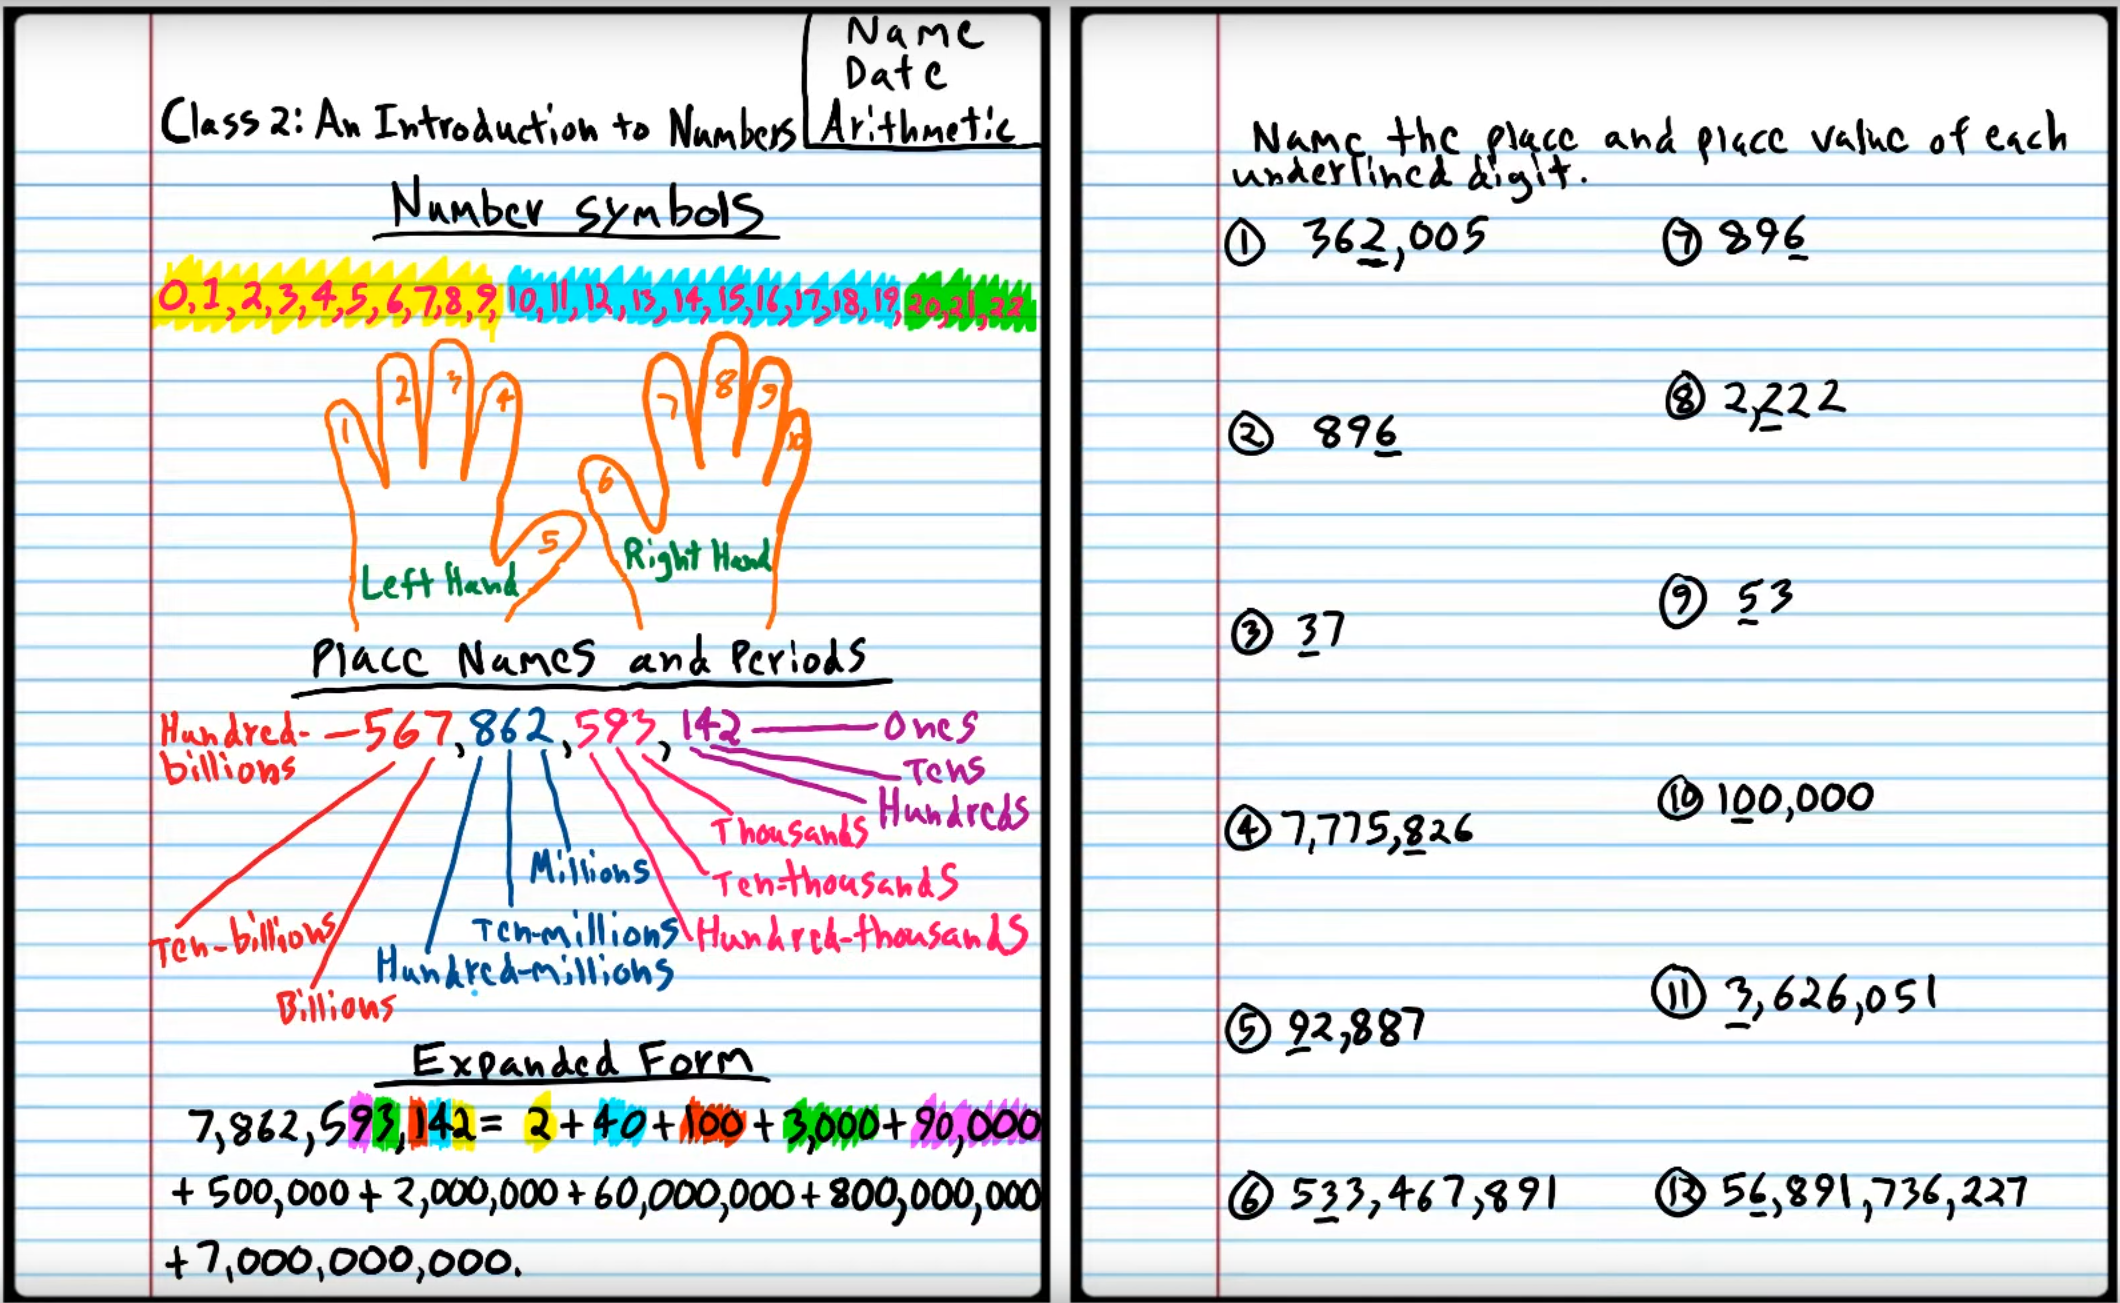 Name
Date
Class 2: An Introduction to Numbers Arithmetic
Number symbols
0, 1, 2, 3, 4, 5, 6, 7, 8, 9, 10, 11, 12, 13, 14, 15, 16, 17, 18, 19, 20, 21, 22
1 2 3 4 5
6 7 8 9 10
Left Hand
Right Hand
Place Names and Periods
Hundred-billions — 567,862,593,142 — Ones
Tens
Hundreds
Thousands
Ten-thousands
Hundred-thousands
Millions
Ten-millions
Hundred-millions
Billions
Ten-billions
Expanded Form
7,862,593,142 = 2 + 40 + 100 + 3,000 + 90,000
+ 500,000 + 2,000,000 + 60,000,000 + 800,000,000
+ 7,000,000,000.
Name the place and place value of each
underlined digit.
① 362,005
② 896
③ 37
④ 7,775,826
⑤ 92,887
⑥ 533,467,891
⑦ 896
⑧ 2,222
⑨ 53
⑩ 100,000
⑪ 3,626,051
⑫ 56,891,736,227